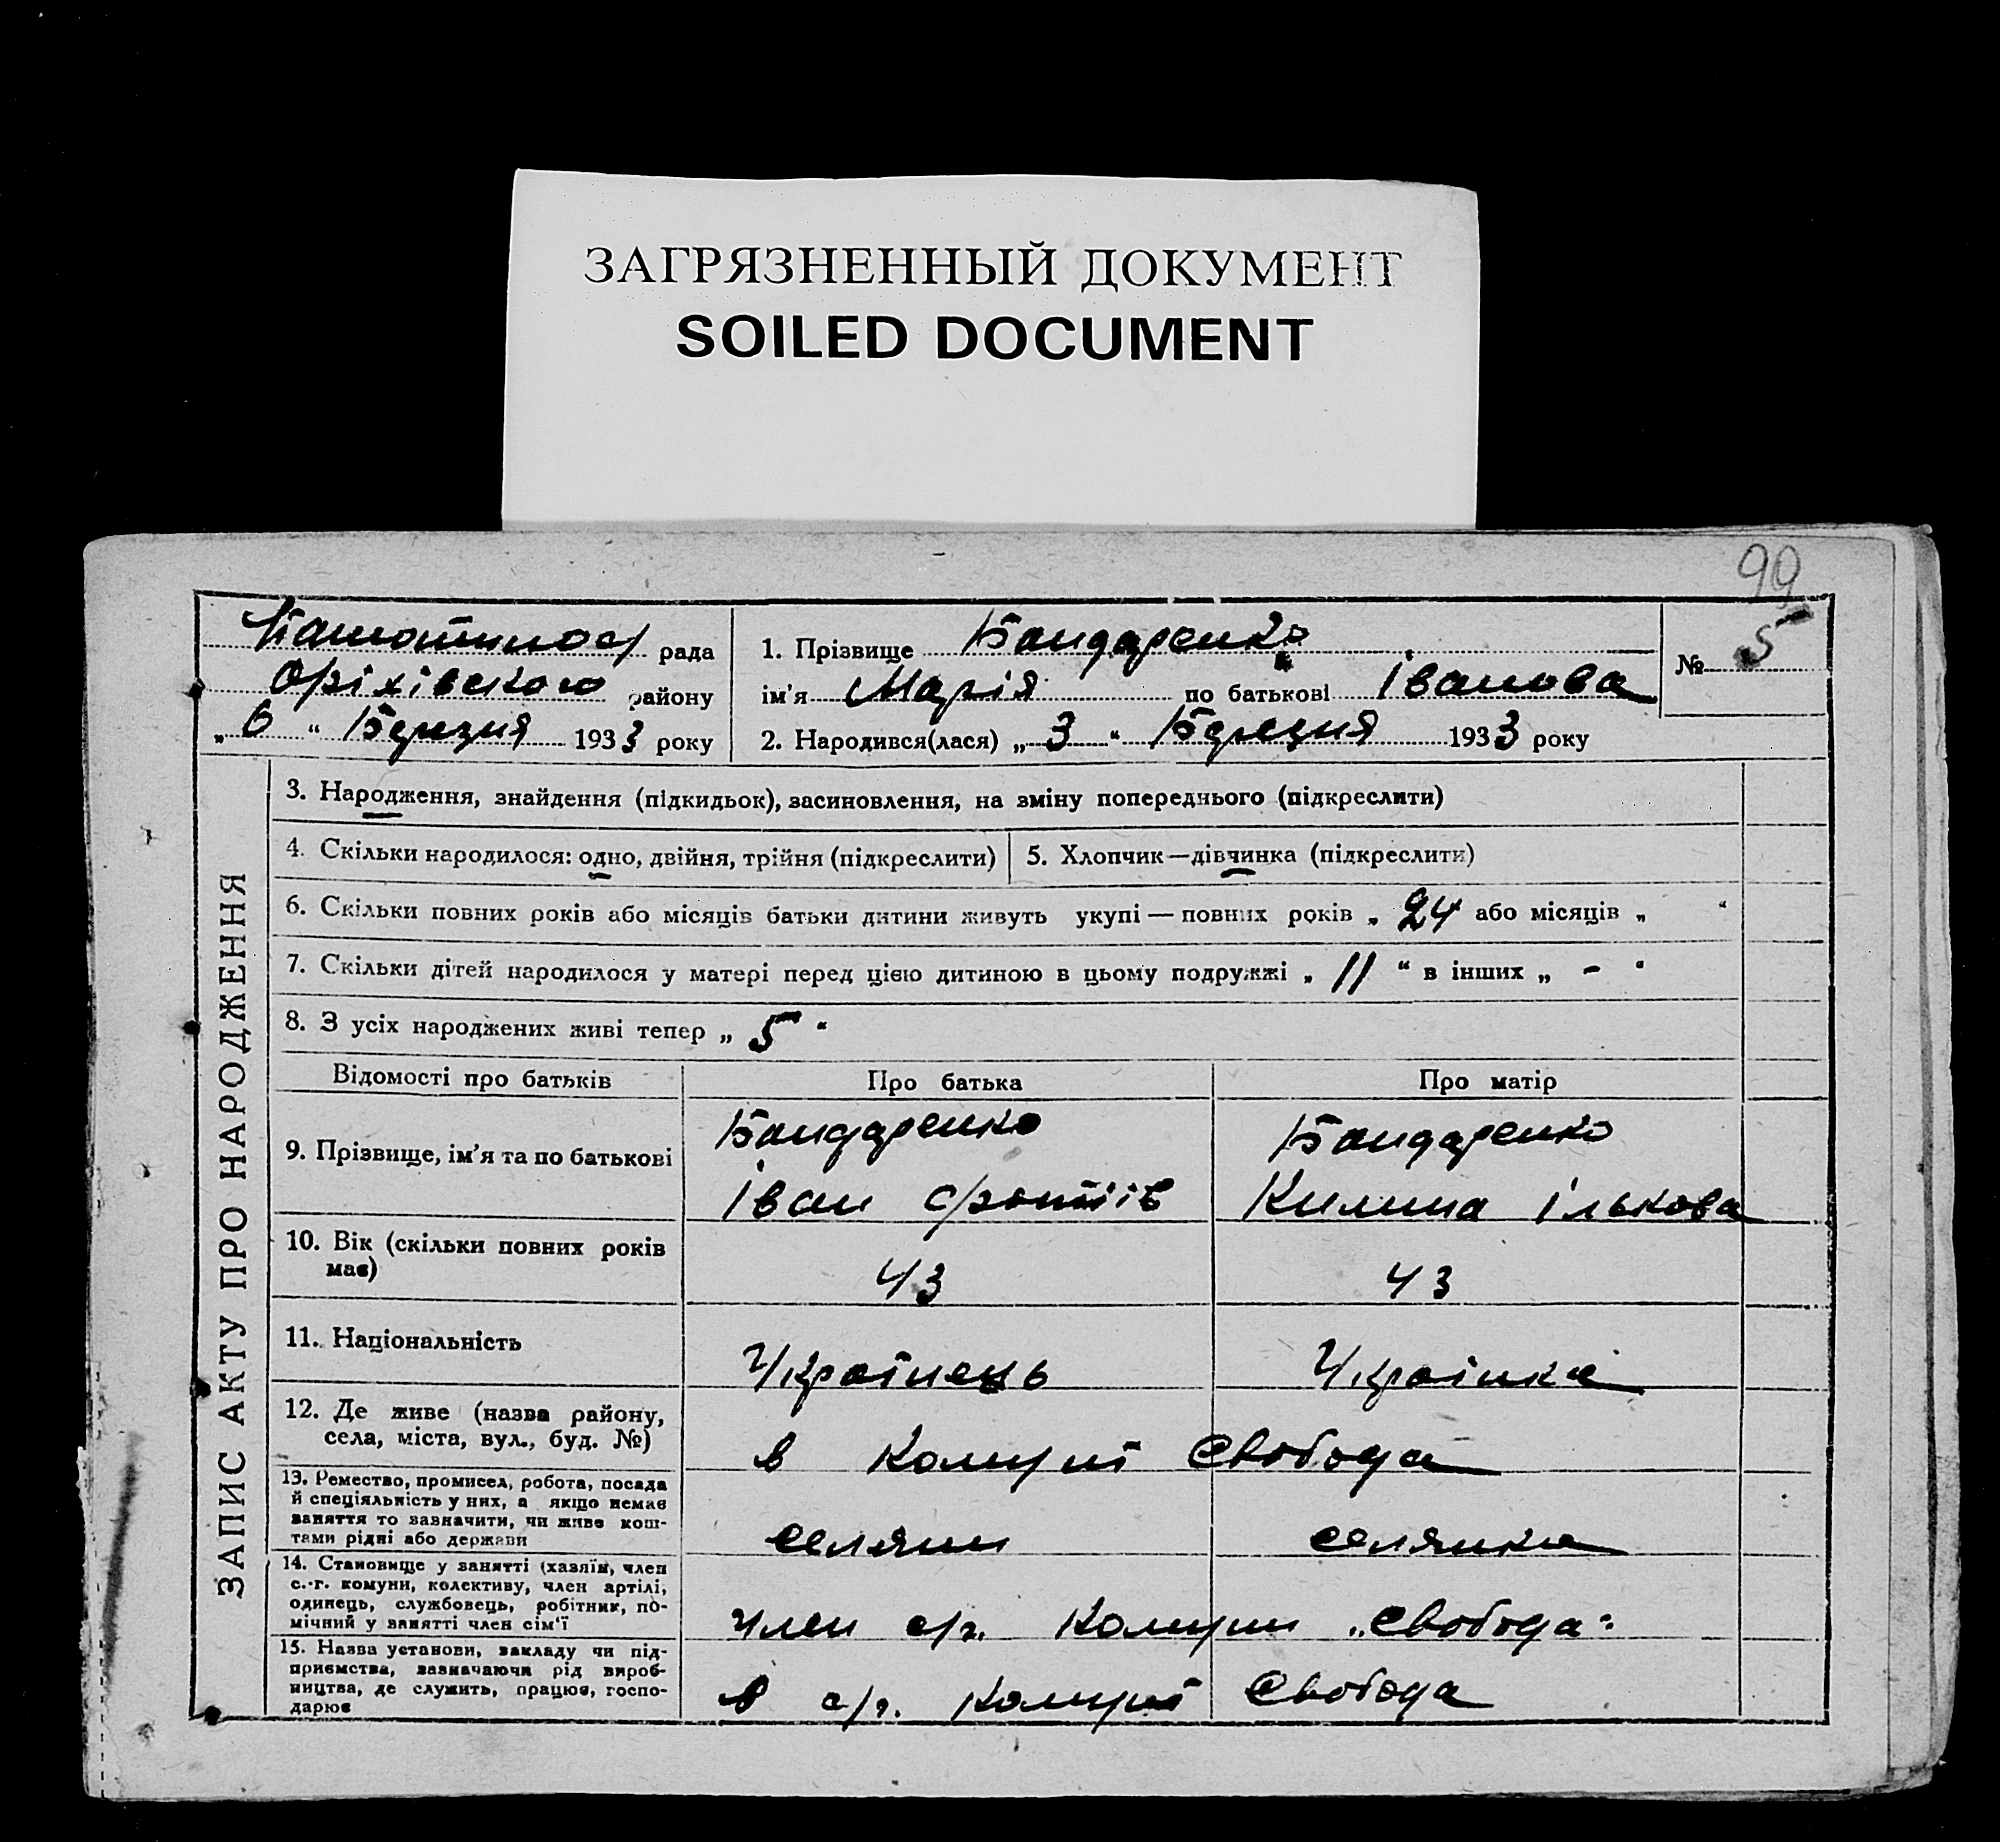 ЗАГРЯЗНЕННЫЙ ДОКУМЕНТ
SOILED DOCUMENT
99
рада
Оріхівського району
„ 6 “ Березня 1933 року
1. Прізвище Бондаренко
ім'я Марія по батькові Іванова
2. Народився(лася) „ 3 “ Березня 1933 року
№ 5
ЗАПИС АКТУ ПРО НАРОДЖЕННЯ
3. Народження, знайдення (підкидьок), засиновлення, на зміну попереднього (підкреслити)
4. Скільки народилося: одно, двійня, трійня (підкреслити)
5. Хлопчик—дівчинка (підкреслити)
6. Скільки повних років або місяців батьки дитини живуть укупі — повних років „ 24 або місяців „ “
7. Скільки дітей народилося у матері перед цією дитиною в цьому подружжі „ 11 “ в інших „ - “
8. З усіх народжених живі тепер „ 5 “
Відомості про батьків Про батька Про матір
9. Прізвище, ім'я та по батькові
Бондаренко
Іван
Бондаренко
Килина Ількова
10. Вік (скільки повних років
має)
43 43
11. Національність
Українець Українка
12. Де живе (назва району,
села, міста, вул., буд. №)
в комуні Свобода
13. Ремество, промисел, робота, посада
й спеціяльність у них, а якщо немає
заняття то зазначити, чи живе кош-
тами рідні або держави
селянин селянка
14. Становище у занятті (хазяїн, член
с.-г. комуни, колективу, член артілі,
одинець, службовець, робітник, по-
мічний у занятті член сім'ї
член с/г. комуни „Свобода“
15. Назва установи, закладу чи під-
приємства, зазначаючи рід вироб-
ництва, де служить, працює, госпо-
дарює
в с/г. комуні Свобода